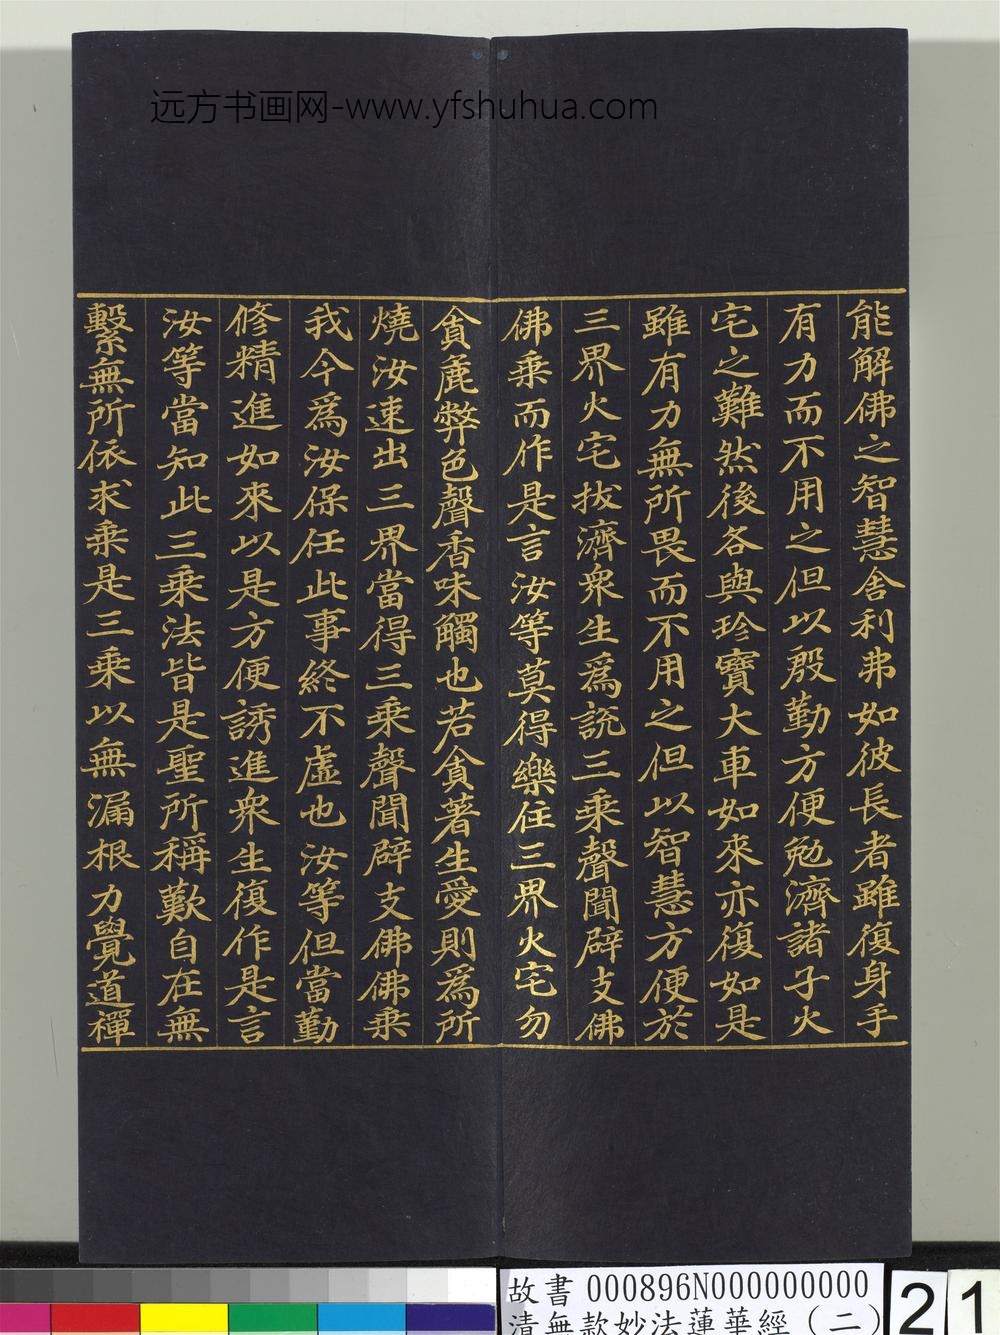 远方书画网-www.yfshuhua.com
能解佛之智慧舍利弗如彼長者雖復身手
有力而不用之但以殷勤方便勉濟諸子火
宅之難然後各與珍寶大車如來亦復如是
雖有力無所畏而不用之但以智慧方便於
三界火宅拔濟眾生為說三乘聲聞辟支佛
佛乘而作是言汝等莫得樂住三界火宅勿
貪麁弊色聲香味觸也若貪著生愛則為所
燒汝速出三界當得三乘聲聞辟支佛佛乘
我今為汝保任此事終不虛也汝等但當勤
修精進如來以是方便誘進眾生復作是言
汝等當知此三乘法皆是聖所稱歎自在無
繫無所依求乘是三乘以無漏根力覺道禪
故書 000896N000000000
清無款妙法蓮華經(二)
21